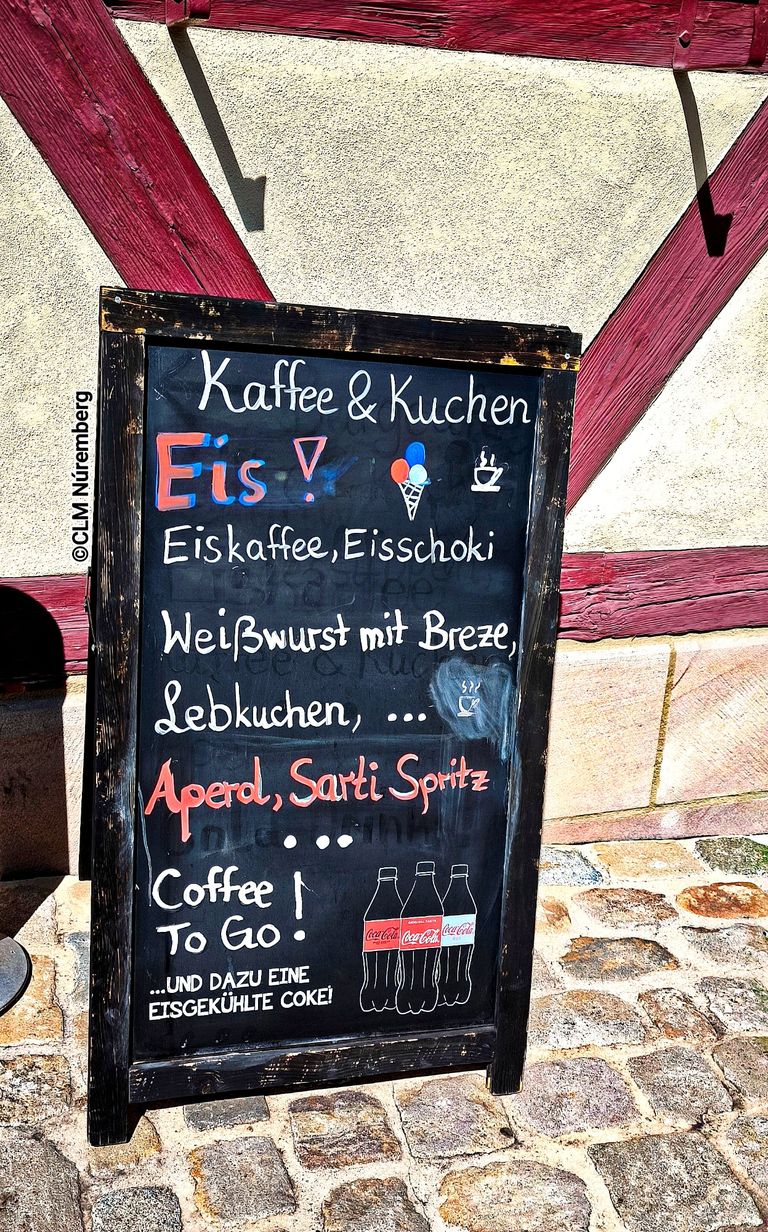 ©CLM Núremberg
Kaffee & Kuchen
Eis!
Eiskaffee, Eisschoki
Weißwurst mit Breze,
Lebkuchen, ...
Aperol, Sarti Spritz
...
Coffee
To Go!
...UND DAZU EINE
EISGEKÜHLTE COKE!
Coca-Cola Coca-Cola Coca-Cola